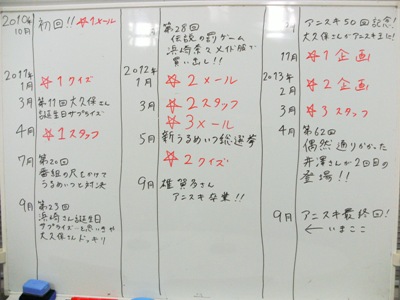 2010年
10月 初回!! ☆1メール
2011年
1月 ☆1クイズ
3月 第11回大久保さん
誕生日サプライズ
4月 ☆1スタッフ
7月 第20回
番組の尺をかけて
うるめいつと対決
9月 第23回
浜崎さん誕生日
サプライズと思いきや
大久保さんドッキリ
第28回
伝説の罰ゲーム
浜崎奈々メイド服で
買い出し!!
2012年
1月 ☆2メール
3月 ☆2スタッフ
☆3メール
5月 新うるめいつ総選挙
☆2クイズ
9月 雄賀多さん
アニスキ卒業!!
アニスキ50回記念!
大久保さんがアニスキ主に!
11月 ☆1企画
2013年
2月 ☆2企画
3月 ☆3スタッフ
4月 第62回
偶然通りがかった
井澤さんが2回目の
登場!!
9月 アニスキ最終回!
←いまここ